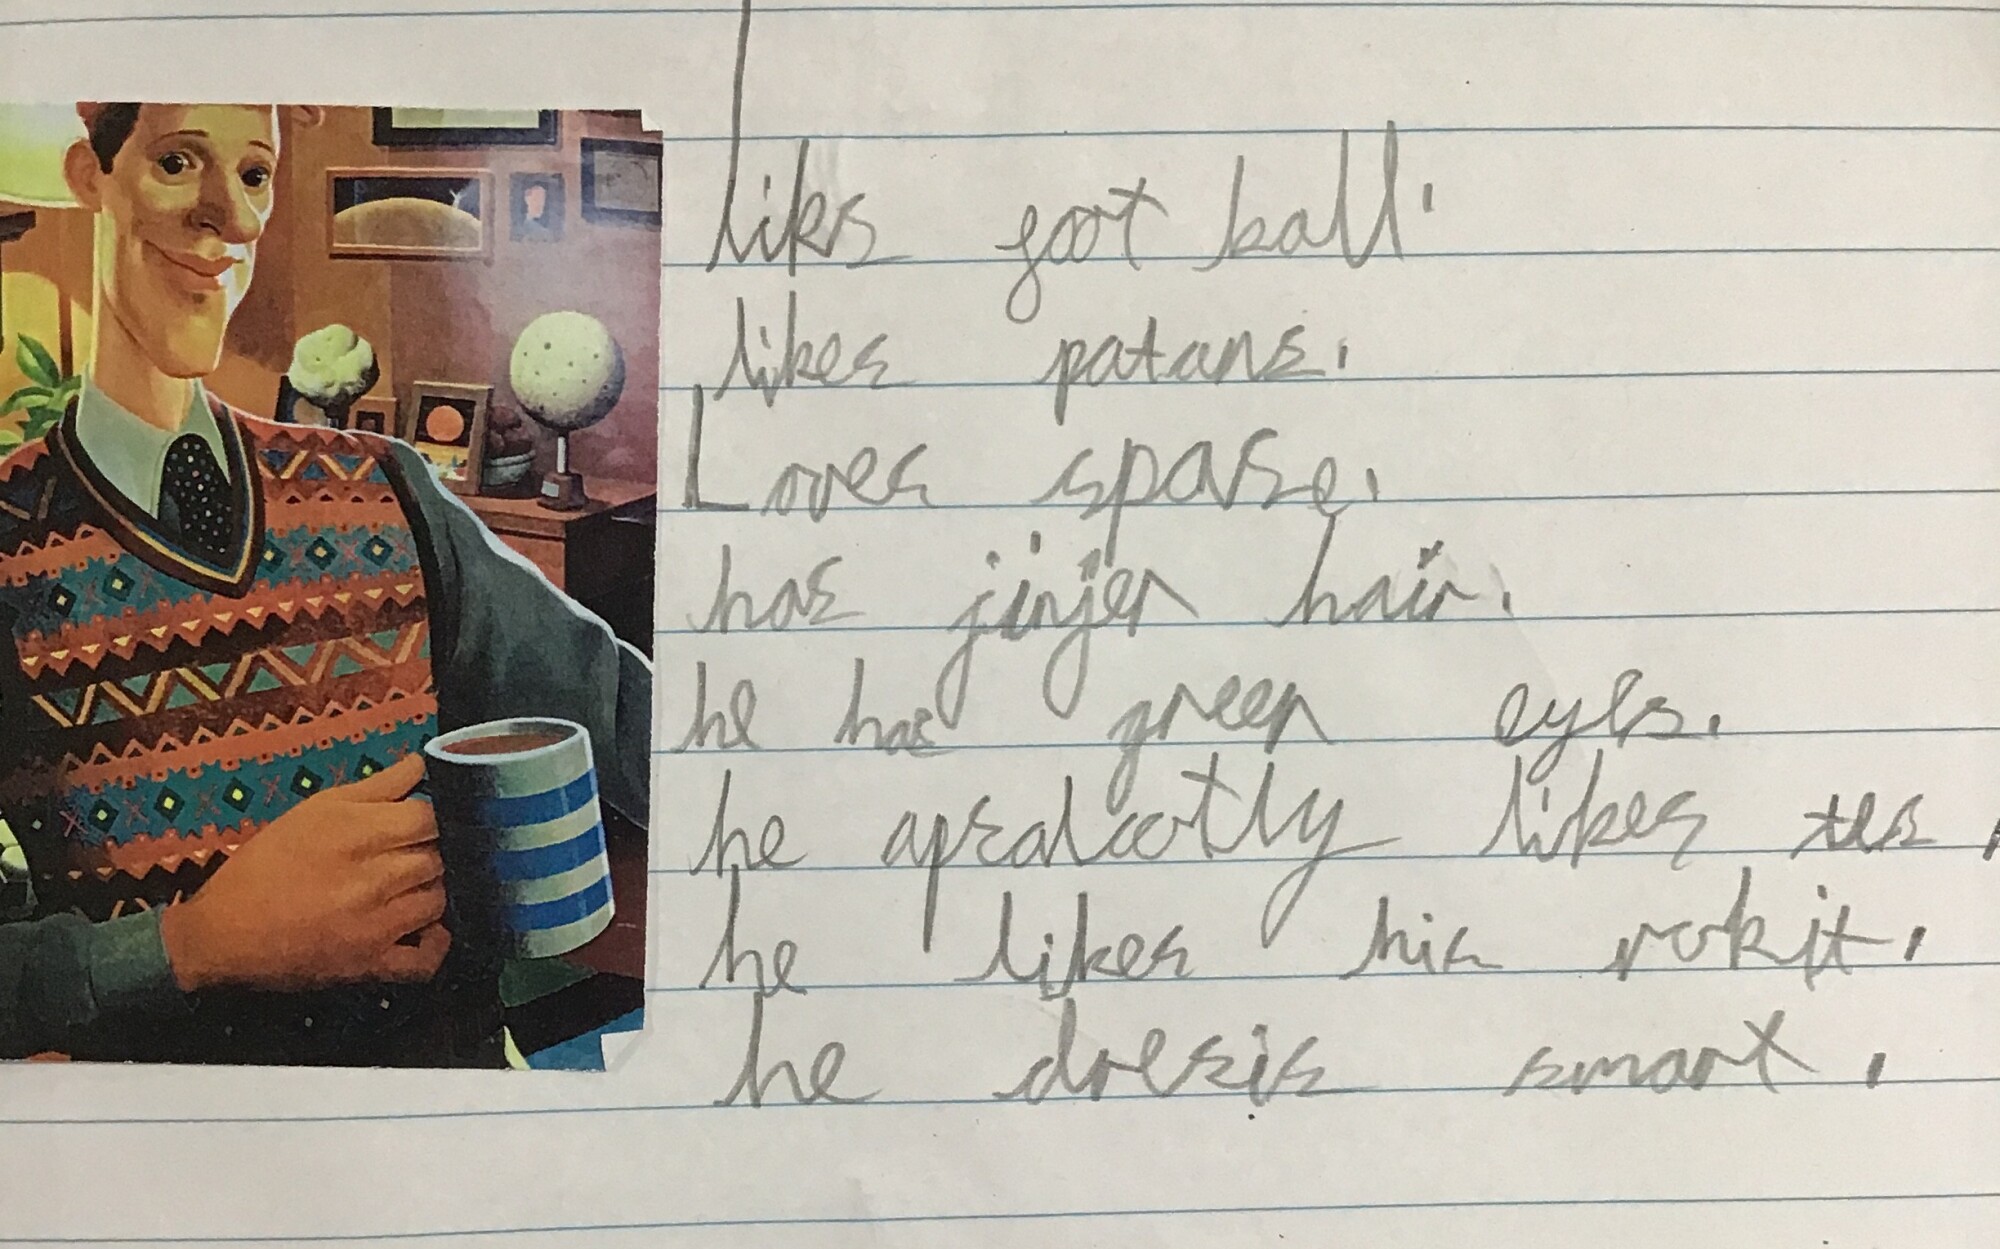 liks foot ball.
likes patans.
Loves spase.
has jinjer hair.
he has green eyes.
he apsalootly likes tea.
he likes his rokit.
he dresis smart.